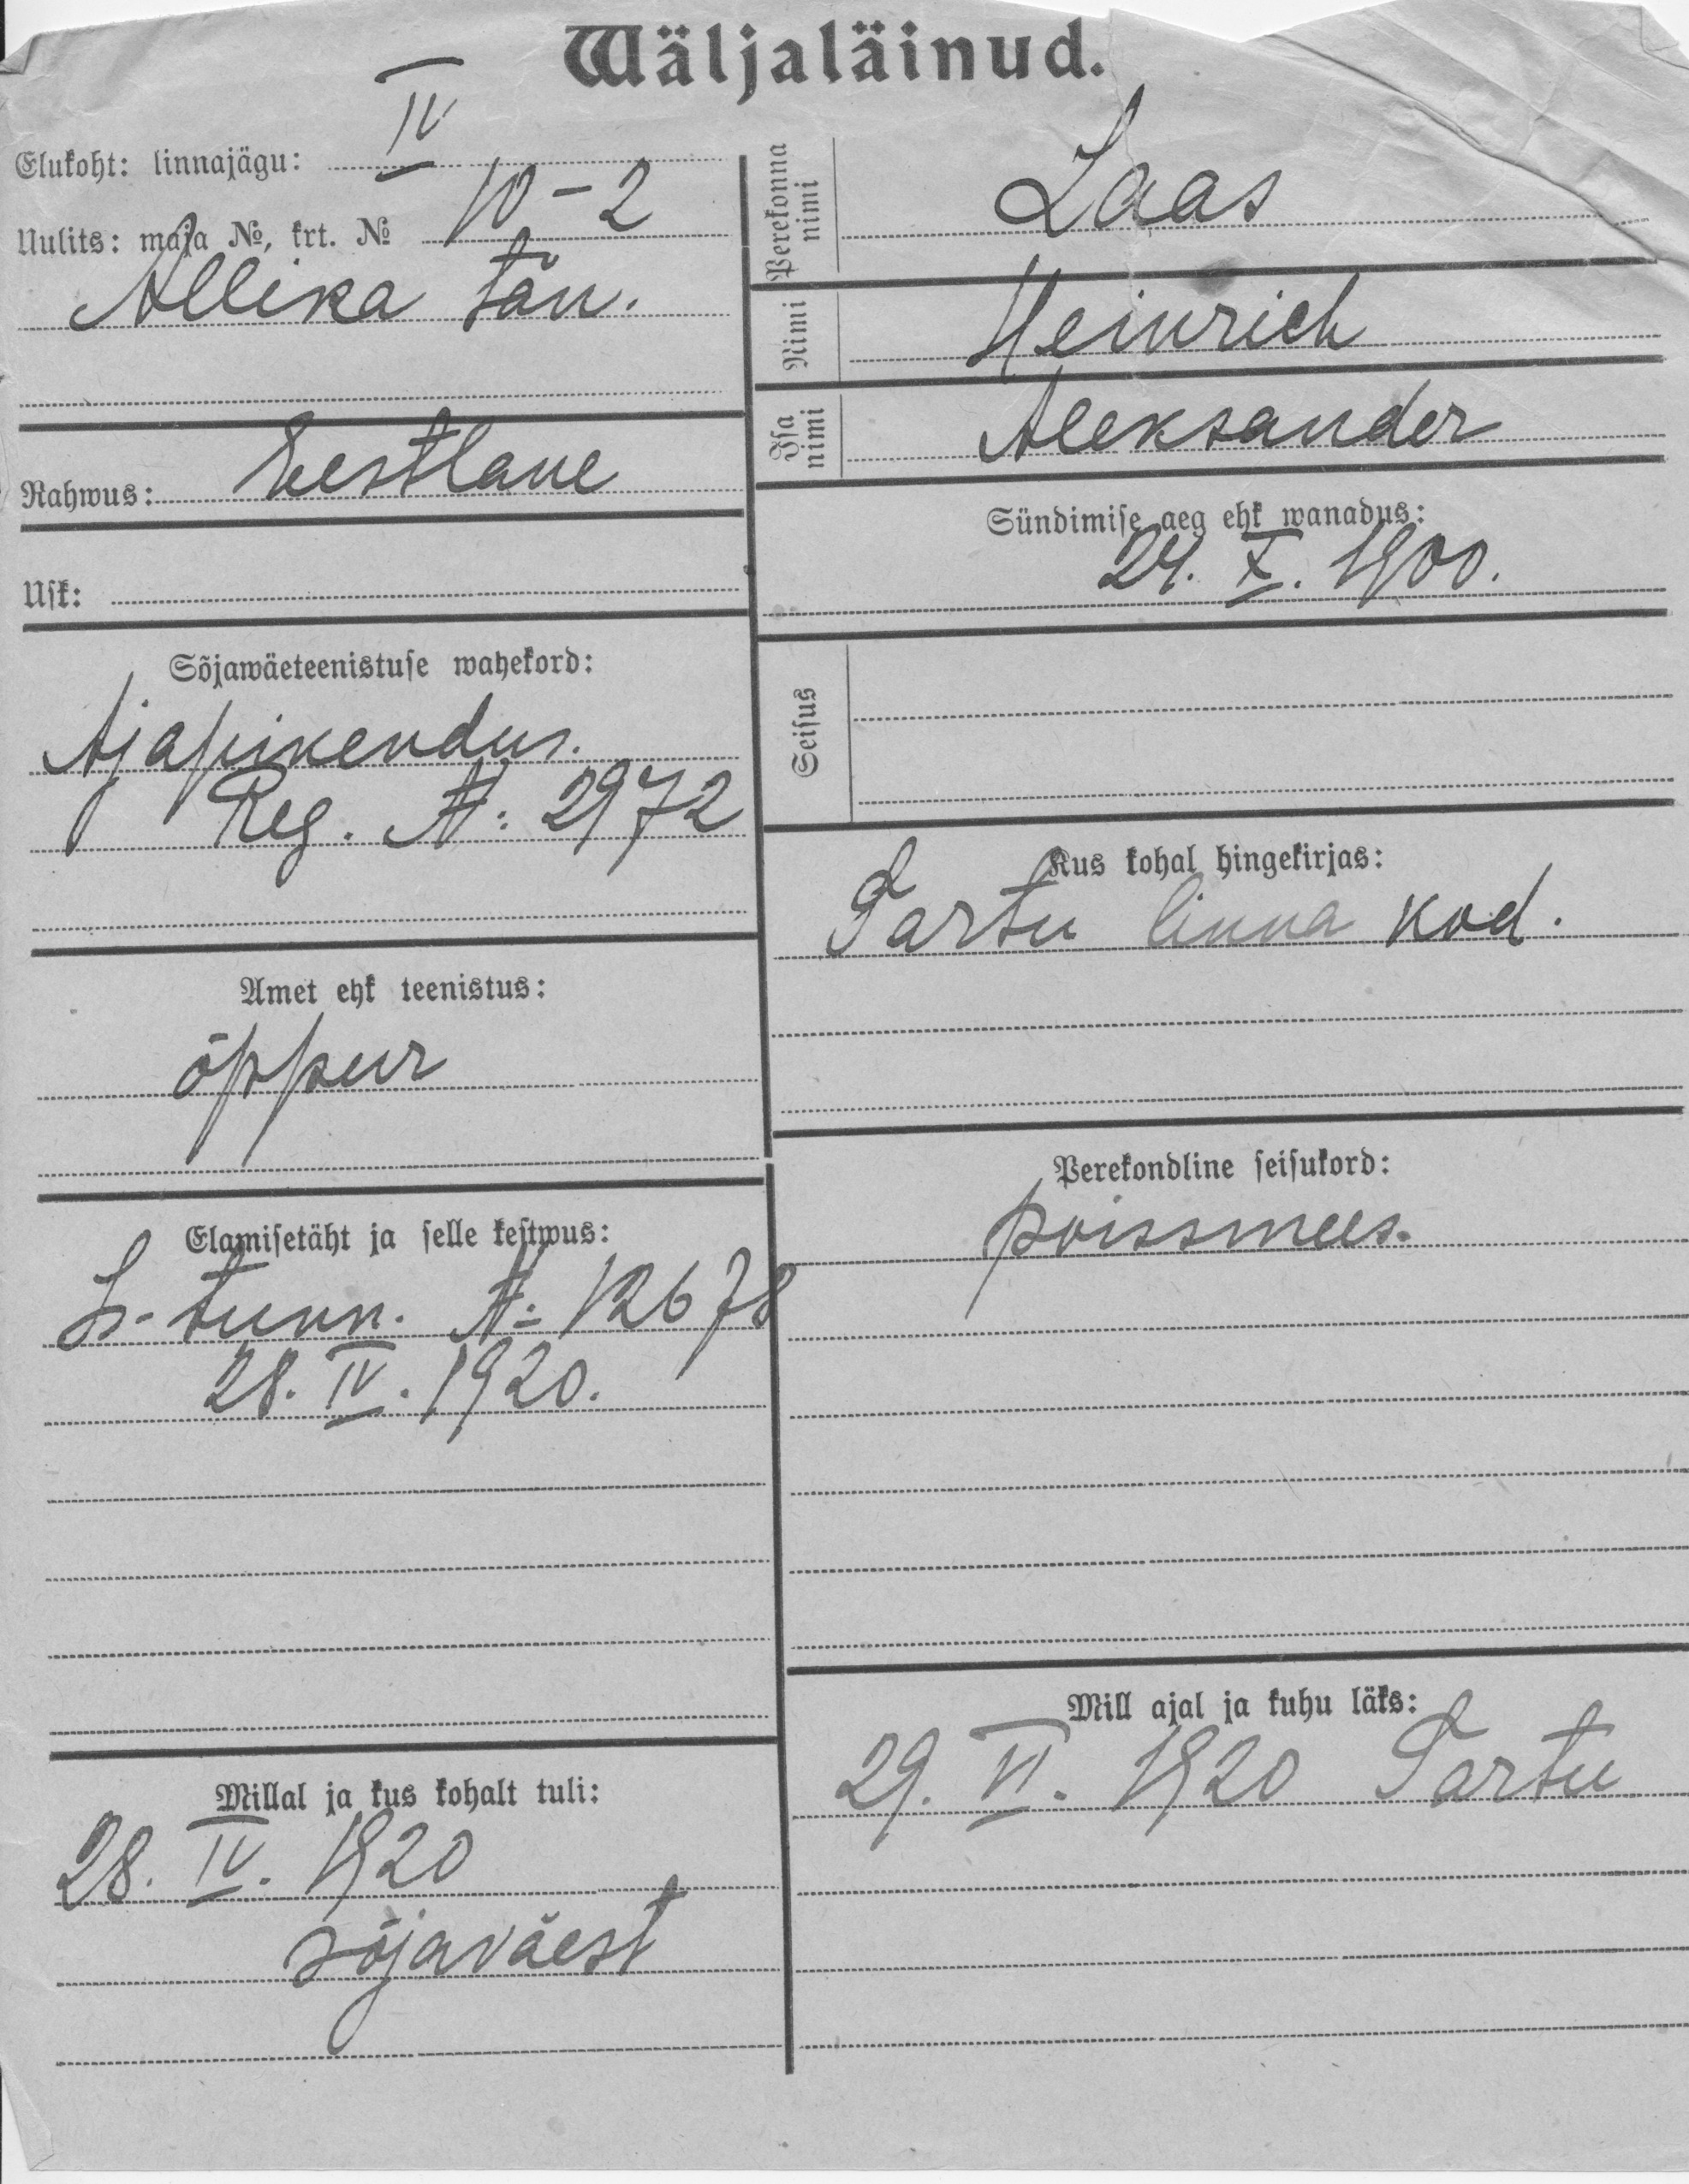 Wäljaläinud.
Elukoht: linnajägu: IV
Uulits: maja №, krt. № 10-2
Allika tän.
Rahwus: Eestlane
Usk:
Sõjawäeteenistuse wahekord:
Ajapikendus.
Reg. №: 2972
Amet ehk teenistus:
õppur
Elamisetäht ja selle kestwus:
I-tunn. №: 12678
28. IV. 1920.
Millal ja kus kohalt tuli:
28. IV. 1920
sõjaväest
Perekonna nimi Laas
Nimi Heinrich
Isa nimi Aleksander
Sündimise aeg ehk wanadus:
24. X. 1900.
Seisus
Kus kohal hingekirjas:
Tartu linna kod.
Perekondline seisukord:
poissmees.
Mill ajal ja kuhu läks:
29. VI. 1920 Tartu